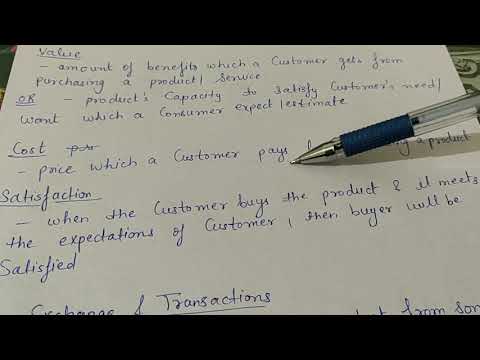 Value
- amount of benefits which a Customer gets from
purchasing a product/ Service
OR - product's Capacity to satisfy Customer's need/
want which a Consumer expect/estimate
Cost
- price which a Customer pays a product
Satisfaction
- when the Customer buys the product & it meets
the expectations of Customer, then buyer will be
Satisfied
Exchange & Transactions
from